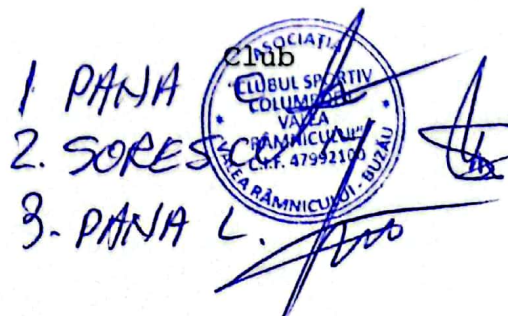 Club
1 PANA
2. SORESCU
3. PANA L.
ASOCIAȚIA
"CLUBUL SPORTIV
COLUMBOFIL
VALEA
RÂMNICULUI"
C.I.F. 47992100
VALEA RÂMNICULUI - BUZĂU